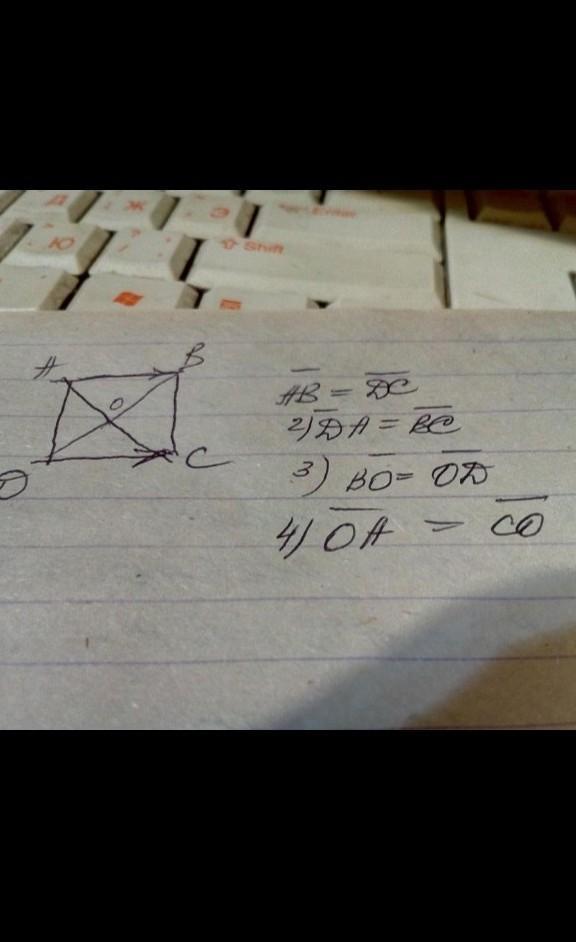 Д Ж Э Enter
Ю ? Shift
A B
O
D C
A̅B̅ = D̅C̅
2) D̅A = B̅C̅
3) BO̅ = O̅D̅
4) O̅A̅ = C̅O̅